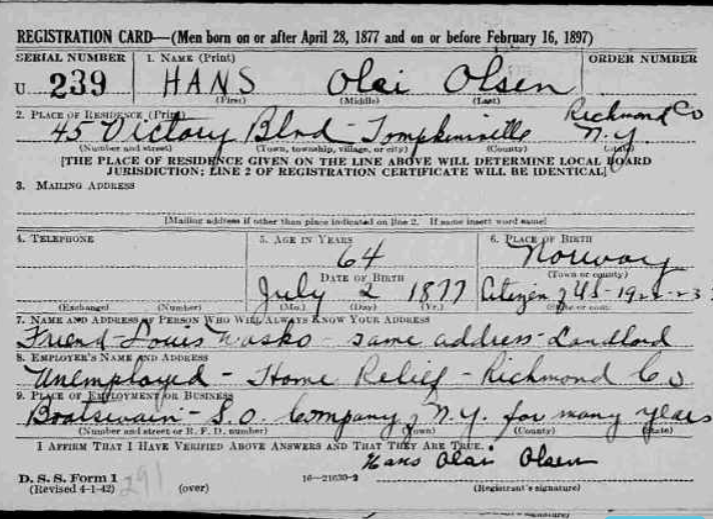 REGISTRATION CARD—(Men born on or after April 28, 1877 and on or before February 16, 1897)
SERIAL NUMBER 1. NAME (Print) ORDER NUMBER
U 239 HANS Olai Olsen
(First) (Middle) (Last)
2. PLACE OF RESIDENCE (Print) Richmond Co
45 Victory Blvd - Tompkinsville N.Y.
(Number and street) (Town, township, village, or city) (County) (State)
[THE PLACE OF RESIDENCE GIVEN ON THE LINE ABOVE WILL DETERMINE LOCAL BOARD
JURISDICTION; LINE 2 OF REGISTRATION CERTIFICATE WILL BE IDENTICAL]
3. MAILING ADDRESS
[Mailing address if other than place indicated on line 2. If same insert word same]
4. TELEPHONE 5. AGE IN YEARS 6. PLACE OF BIRTH
64 Norway
DATE OF BIRTH (Town or county)
July 2 1877 Citizen of US - 1922-23
(Exchange) (Number) (Mo.) (Day) (Yr.)
7. NAME AND ADDRESS OF PERSON WHO WILL ALWAYS KNOW YOUR ADDRESS
Friend - Louis Wasko - same address - Landlord
8. EMPLOYER'S NAME AND ADDRESS
Unemployed - Home Relief - Richmond Co
9. PLACE OF EMPLOYMENT OR BUSINESS
Boatswain - S.O. Company of N.Y. for many years
(Number and street or R. F. D. number) (Town) (County) (State)
I AFFIRM THAT I HAVE VERIFIED ABOVE ANSWERS AND THAT THEY ARE TRUE.
Hans Olai Olsen
D. S. S. Form 1 16—21630-2
(Revised 4-1-42) 291 (over) (Registrant's signature)